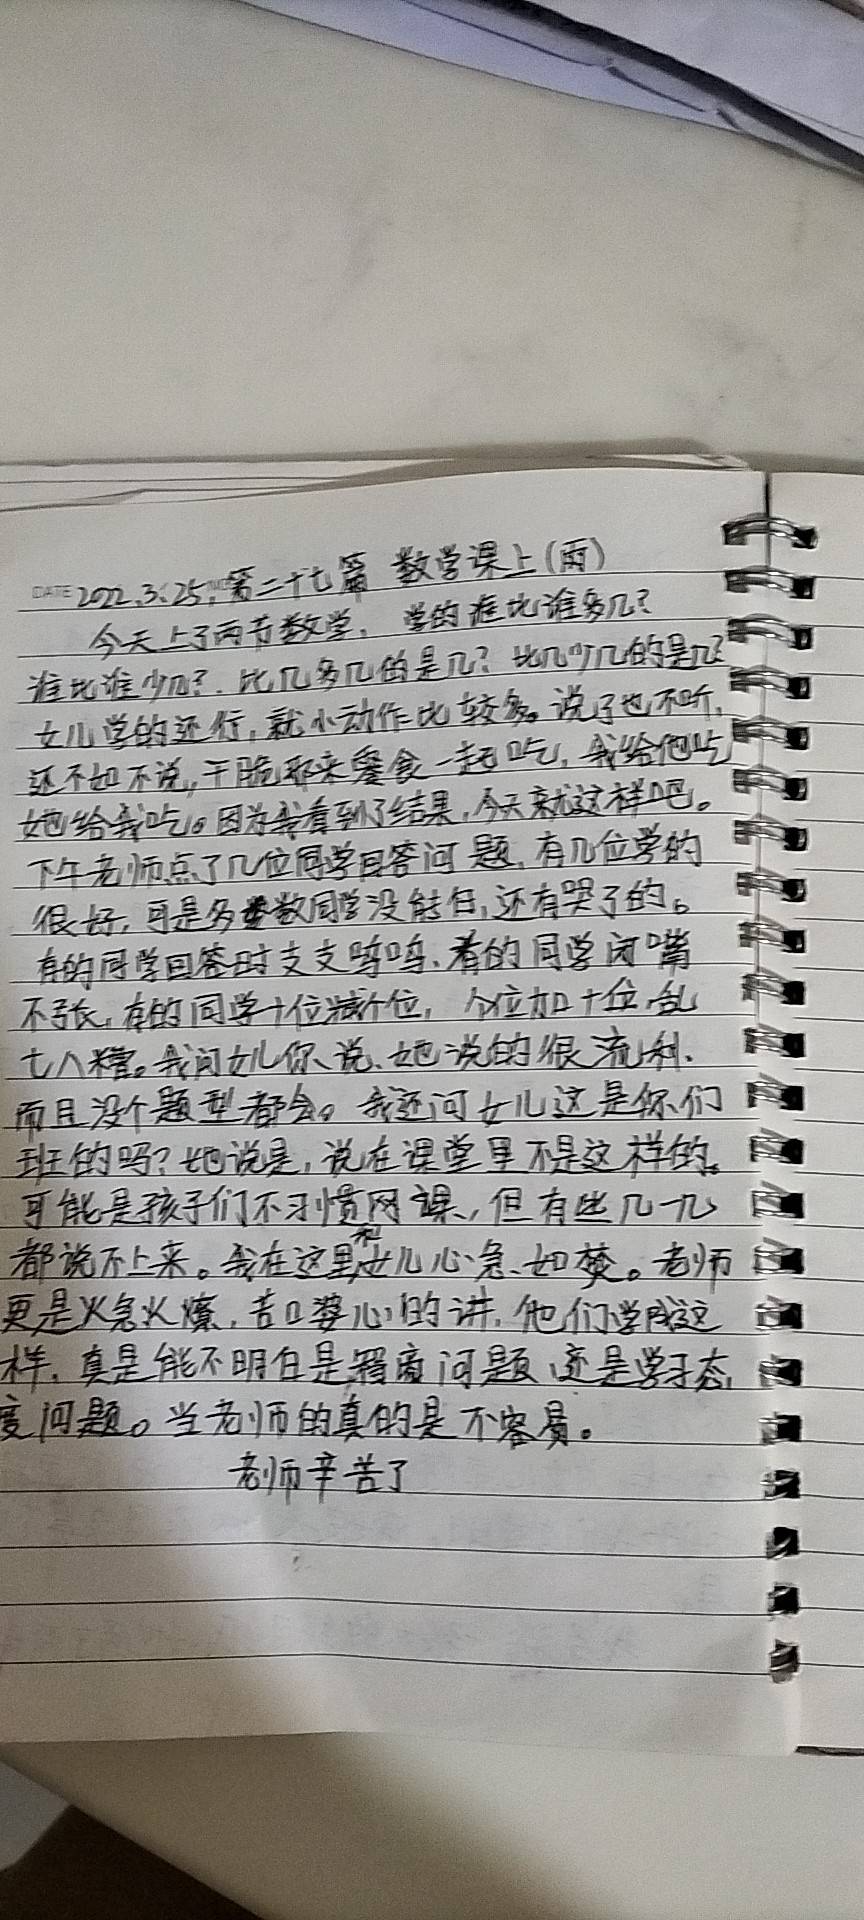 DATE 2022.3.25. 第二十七篇 数学课上(雨)
今天上了两节数学,学的谁比谁多几?
谁比谁少几?比几多几的是几?比几少几的是几?
女儿学的还行,就小动作比较多。说了也不听,
还不如不说,干脆那来零食一起吃,我给他吃
她给我吃。因为我看到了结果,今天就这样吧。
下午老师点了几位同学回答问题,有几位学的
很好,可是多数同学没能白,还有哭了的。
有的同学回答时支支呜呜、有的同学闭嘴
不张,有的同学十位减个位,个位加十位,乱
七八糟。我问女儿你说、她说的很流利、
而且没个题型都会。我还问女儿这是你们
班的吗?她说是,说在课堂里不是这样的。
可能是孩子们不习惯网课,但有些几一几
都说不上来。我在这里和女儿心急如焚。老师
更是火急火燎,苦口婆心的讲,他们学成这
样,真是能不明白是 问题还是学习态
度问题。当老师的真的是不容易。
老师辛苦了